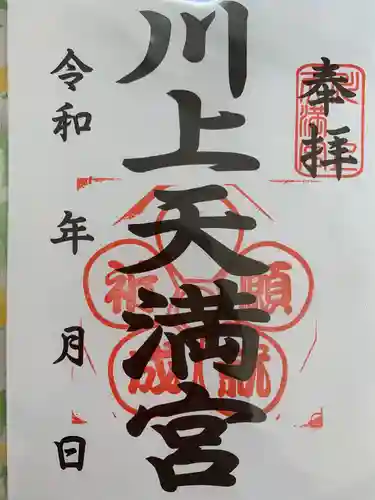 奉拝
川上天満宮
令和 年 月 日